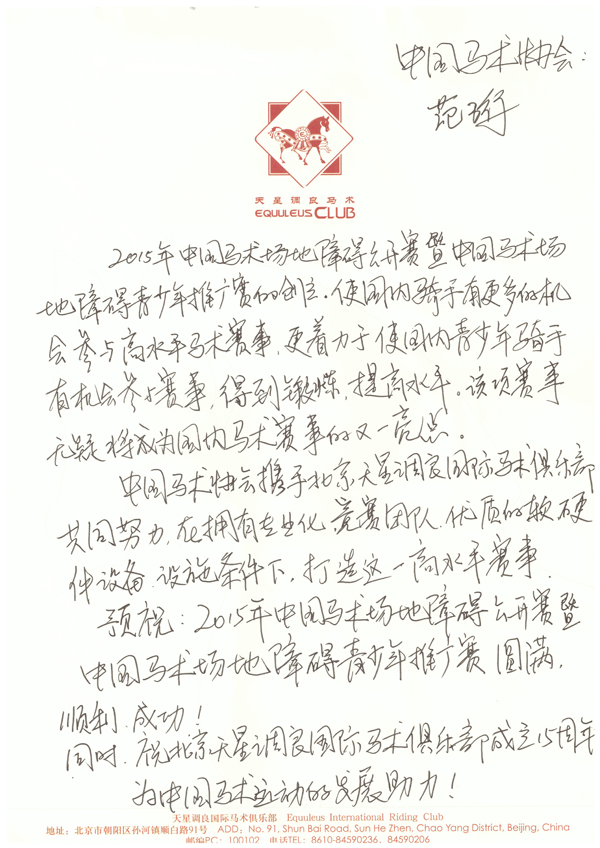 中国马术协会:
范珩
天星调良马术
EQUULEUS CLUB
2015年中国马术场地障碍公开赛暨中国马术场
地障碍青少年推广赛的创立.使国内骑手有更多的机
会参与高水平马术赛事,更着力于使国内青少年骑手
有机会参与赛事,得到锻炼,提高水平。该项赛事
无疑将成为国内马术赛事的又一亮点。
中国马术协会携手北京天星调良国际马术俱乐部
共同努力,在拥有专业化竞赛团队,优质的软硬
件设备、设施条件下,打造这一高水平赛事.
预祝:2015年中国马术场地障碍公开赛暨
中国马术场地障碍青少年推广赛圆满,
顺利.成功!
同时.祝北京天星调良国际马术俱乐部成立15周年
为中国马术运动的发展助力!
天星调良国际马术俱乐部 Equuleus International Riding Club
地址:北京市朝阳区孙河镇顺白路91号 ADD: No. 91, Shun Bai Road, Sun He Zhen, Chao Yang District, Beijing, China
邮编PC: 100102 电话TEL: 8610-84590236、84590206